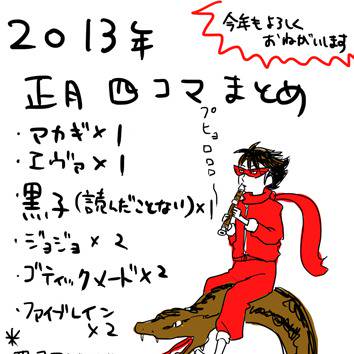 2013年
今年もよろしく
おねがいします
正月四コマまとめ
・アカギ×1
・エヴァ×1
プヒョロロロ〜
黒子(読んだことない)×1
・ジョジョ×2
・ゴティックメード×2
・ファイブレイン
×2
*